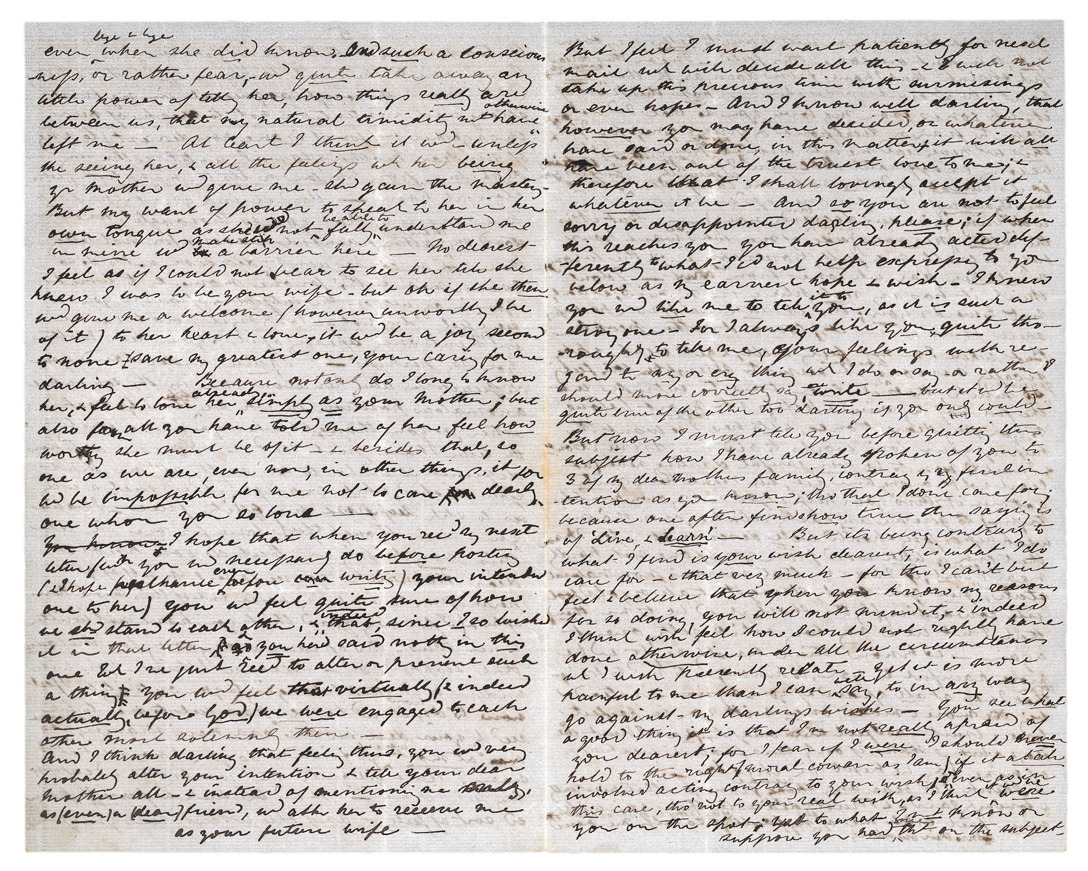 bye & bye
even when she did know. And such a conscious
ness, or rather fear, wd quite take away any
little power of tellg her, how things really are
between us, that my natural timidity mt otherwise have
left me — At least I think it wd — unless
the seeing her, & all the feelgs wh her being
yr mother wd give me shd gain the mastery —
But my want of power to speak to her in her
own tongue as she wd not be able to fully understand me
in mine wd make such a barrier "here" — No dearest
I feel as if I could not bear to see her till she
knew I was to be your wife — but oh if she then
wd give me a welcome (however unworthy I be
of it) to her heart & love, it wd be a joy second
to none, save my greatest one, your carg for me
darling — Because not only do I long to know
her, & feel to love her already simply as your Mother, but
also fm all you have told me of her feel how
worthy she must be of it — & besides that, so
one as we are, even now, in other things, it
wd be impossible for me not to care for dearly
one whom you so love —
You know I hope that when you rec'd my next
letter you wd necessary do before posting
(& I hope perchance even before writg) your intended
one to her) you wd feel quite sure of how
we shd stand to each other, & that indeed since I so wished
it in that letter, if you had said nothg in this
one Wd I've just rec'd to alter or prevent such
a thing, you wd feel that virtually (& indeed
actually, before God,) we were engaged to each
other most solemnly then. —
And I think darling that feelg thus, you wd very
probably alter your intention & tell your dear
mother all — & instead of mentiong me
as (even) a (dear) friend, wd ask her to receive me
as your future wife —
But I feel I must wait patiently for next
mail wh will decide all this — & I will not
take up this precious time with surmisings
or even hopes — And I know well darling, that
however you may have decided, or whatever
have said or done, in this matter, it will all
have been out of the truest love to me, &
therefore that I shall lovingly accept it
whatever it be — And so you are not to feel
sorry or disappointed darling, please, if when
this reaches you you have already acted dif-
ferently to what I cd not help expressg to you
below as my earnest hope & wish — I knew
you wd like me to tell it to you, as it is such a
strong one — For I always like you, quite tho-
roughly to tell me, your feelings with re-
gard to any or evy thing wh I do or say — or rather I
should more correctly say, write — but it wd be
quite true of the other too darling if you only could —
But now I must tell you before quitting this
subject how I have already spoken of you to
3 of my dear mother's family, contrary to my first in-
tention as you know; tho that I don't care for,
because one after finds how true the sayg is
of "live & learn" — But its being contrary to
what I find is your wish dearest, is what I do
care for — & that very much — for tho I can't but
feel & believe that when you know my reasons
for so doing, you will not mind it, & indeed
I think will feel how I could not rightly have
done otherwise, under all the circumstances
wh I will presently relate, yet it is more
painful to me than I can say, to in any way
go against my darlings wishes — You see what
a good thing it is that I'm not really afraid of
you dearest, for I fear if I were I should never
hold to the right (moral coward as I am) if it at all
involved acting contrary to your wish, even as in
this case, tho not to your real wish, as I think it were
you on the spot; yet to what know or
suppose you had, tht on the subject.